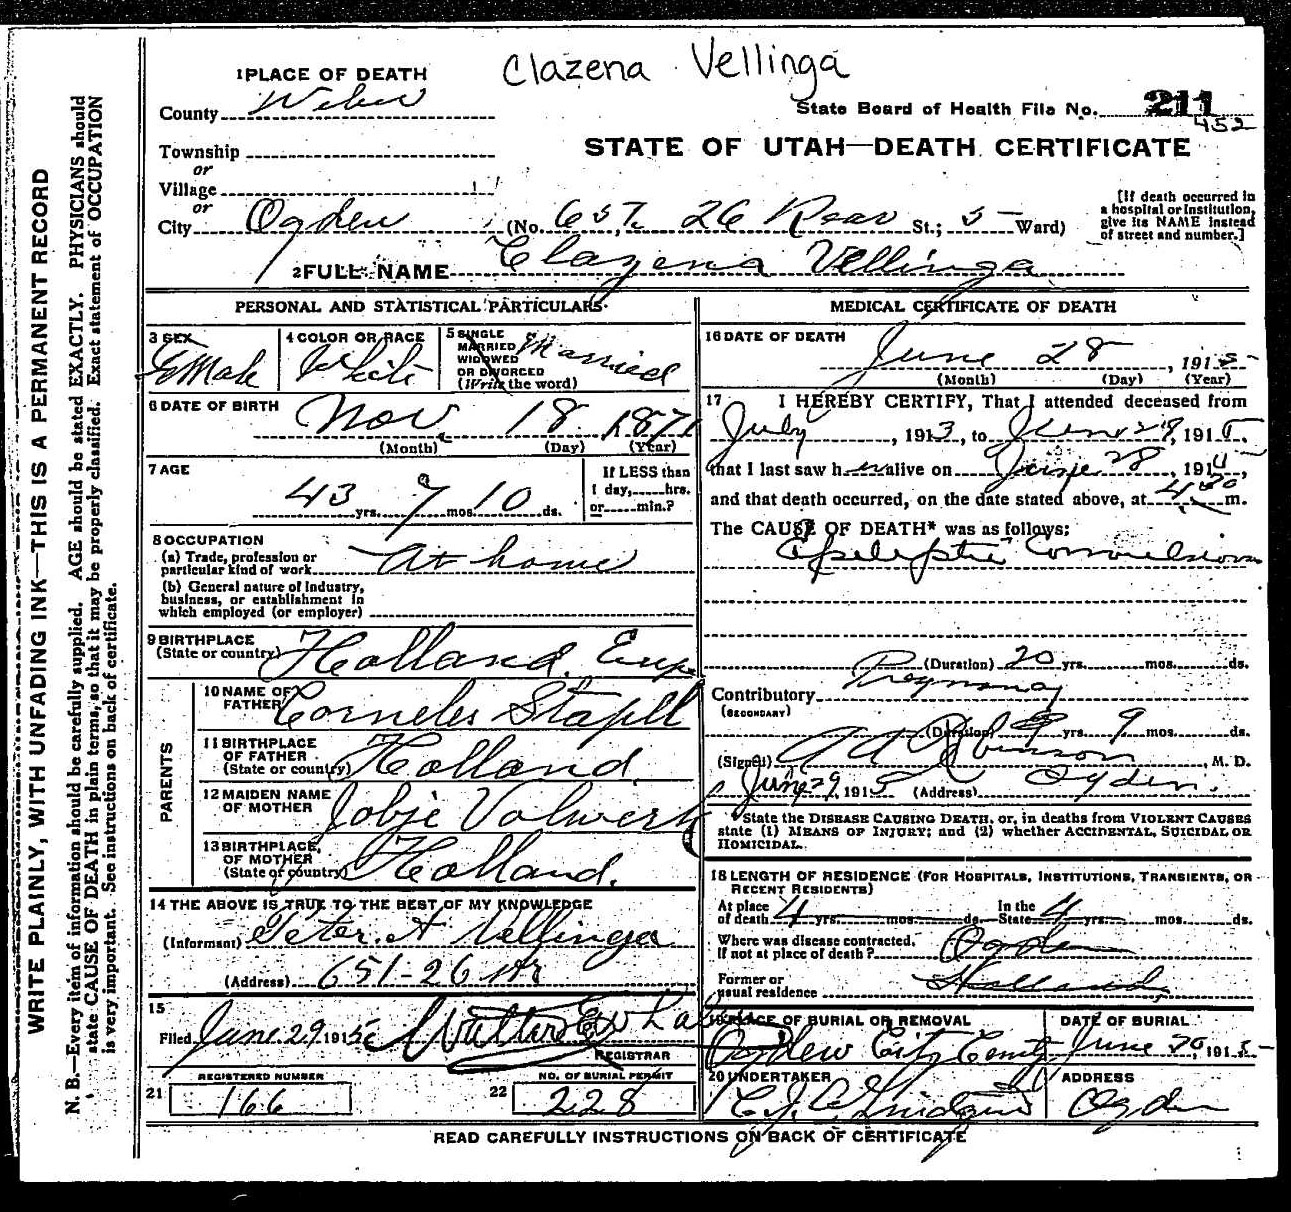 Clazena Vellinga
1 PLACE OF DEATH
County Weber
State Board of Health File No. 211
452
Township
or
Village
or
STATE OF UTAH—DEATH CERTIFICATE
[If death occurred in
a hospital or institution,
give its NAME instead
of street and number.]
City Ogden (No. 657 26 Rear St.; 5 Ward)
2 FULL NAME Clazena Vellinga
PERSONAL AND STATISTICAL PARTICULARS
3 SEX
Female
4 COLOR OR RACE
White
5 SINGLE
MARRIED
WIDOWED
OR DIVORCED
(Write the word)
Married
6 DATE OF BIRTH
Nov. 18 1871
(Month) (Day) (Year)
7 AGE
43 yrs. 7 mos. 10 ds.
If LESS than
1 day, hrs.
or min.?
8 OCCUPATION
(a) Trade, profession or
particular kind of work At home
(b) General nature of industry,
business, or establishment in
which employed (or employer)
9 BIRTHPLACE
(State or country) Holland. Eup
PARENTS
10 NAME OF
FATHER Corneles Stapll
11 BIRTHPLACE
OF FATHER
(State or country) Holland.
12 MAIDEN NAME
OF MOTHER Jobje Volwerk
13 BIRTHPLACE
OF MOTHER
(State or country) Holland.
14 THE ABOVE IS TRUE TO THE BEST OF MY KNOWLEDGE
(Informant) Peter A Vellinga
(Address) 651-26 str
15
Filed June 29 1915 Walter
REGISTRAR
21
REGISTERED NUMBER
166
22
NO. OF BURIAL PERMIT
228
MEDICAL CERTIFICATE OF DEATH
16 DATE OF DEATH
June 28, 1915
(Month) (Day) (Year)
17 I HEREBY CERTIFY, That I attended deceased from
July, 1913, to June 28, 1915,
that I last saw her alive on June 28, 1915,
and that death occurred, on the date stated above, at 4:30 m.
The CAUSE OF DEATH* was as follows:
Epileptic Convulsions
(Duration) 20 yrs. mos. ds.
Contributory Pregnancy
(SECONDARY)
(Duration) yrs. 9 mos. ds.
(Signed) A A Robinson, M. D.
June 29, 1915 (Address) Ogden.
*State the DISEASE CAUSING DEATH, or, in deaths from VIOLENT CAUSES
state (1) MEANS OF INJURY; and (2) whether ACCIDENTAL, SUICIDAL OR
HOMICIDAL.
18 LENGTH OF RESIDENCE (FOR HOSPITALS, INSTITUTIONS, TRANSIENTS, OR
RECENT RESIDENTS)
At place
of death 4 yrs. mos. ds.
In the
State 4 yrs. mos. ds.
Where was disease contracted,
If not at place of death? Ogden
Former or
usual residence Holland,
19 PLACE OF BURIAL OR REMOVAL
Ogden City Cemty
DATE OF BURIAL
June 30, 1915
20 UNDERTAKER
ADDRESS
Ogden
READ CAREFULLY INSTRUCTIONS ON BACK OF CERTIFICATE
WRITE PLAINLY, WITH UNFADING INK—THIS IS A PERMANENT RECORD
N. B.—Every item of information should be carefully supplied. AGE should be stated EXACTLY. PHYSICIANS should
state CAUSE OF DEATH in plain terms, so that it may be properly classified. Exact statement of OCCUPATION
is very important. See instructions on back of certificate.